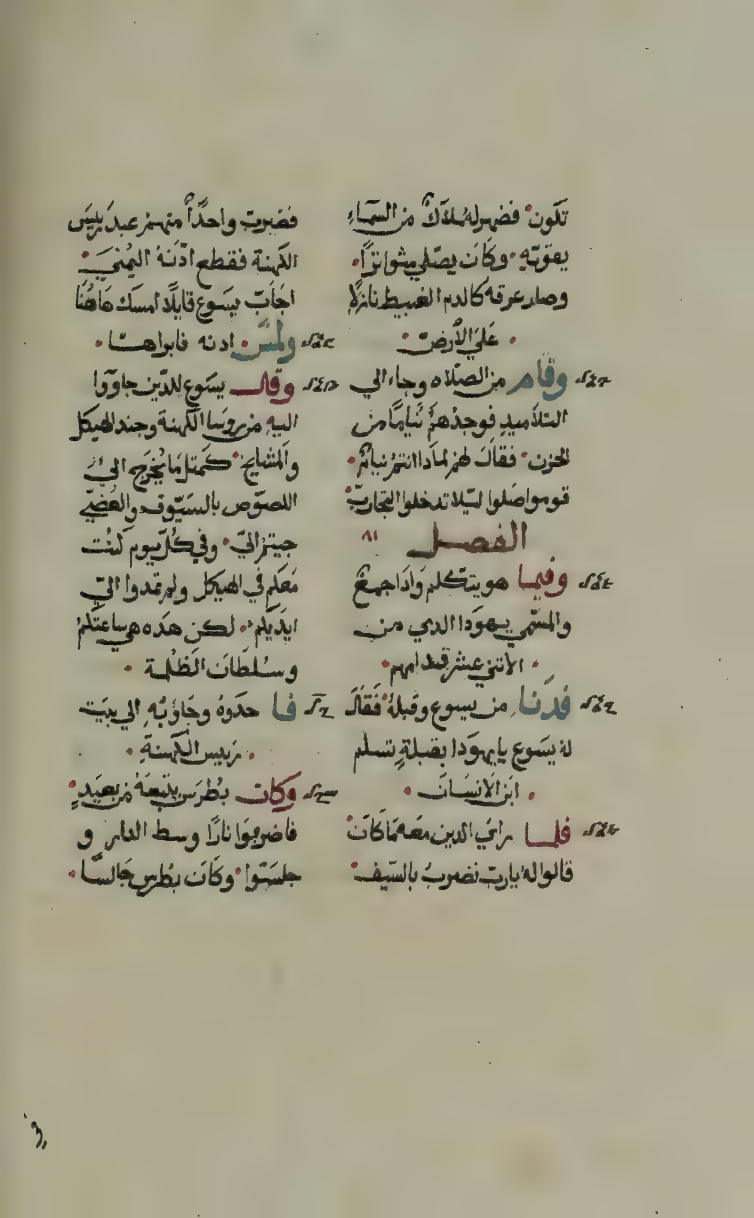 تكون فضهر له ملاكٌ من السماء
يقوته وكان يصلي متواترًا
وصار عرقه كالدم الغبيط نازلا
علي الأرض
وقام من الصلاه وجاء الي
التلاميد فوجدهم نيامًا من
الحزن فقال لهم لمادا انتم نيام
قوموا صلوا ليلا تدخلوا التجارب
الفصل ٨١
وفيما هو يتكلم وادا جمع
والمسمي يهودا الدي من
الاتني عشر قدامهم
فدنا من يسوع وقبله فقال
له يسوع يا يهودا بقبلةٍ تسلم
ابن الانسان
فلما راي الدين معه ما كان
قالوا له يارب نضرب بالسيف
فضرب واحدًا منهم عبد رييس
الكهنة فقطع ادنه اليمني
اجاب يسوع قايلًا امسك هاهنا
ولمس ادنه فابراها
وقال يسوع للدين جاووا
اليه من روسا الكهنة وجند الهيكل
والمشايخ كمتل ما يخرج الي
اللصوص بالسيوف والعصي
جيتم الي وفي كل يوم كنت
معكم في الهيكل ولم تمدوا الي
ايديكم لكن هده هي ساعتكم
وسلطان الظلمة
فاخدوه وجاؤ به الي بيت
رييس الكهنة
وكان بطرس يتبعه من بعيدٍ
فاضرموا نارًا وسط الدار و
جلسوا وكان بطرس جالسًا